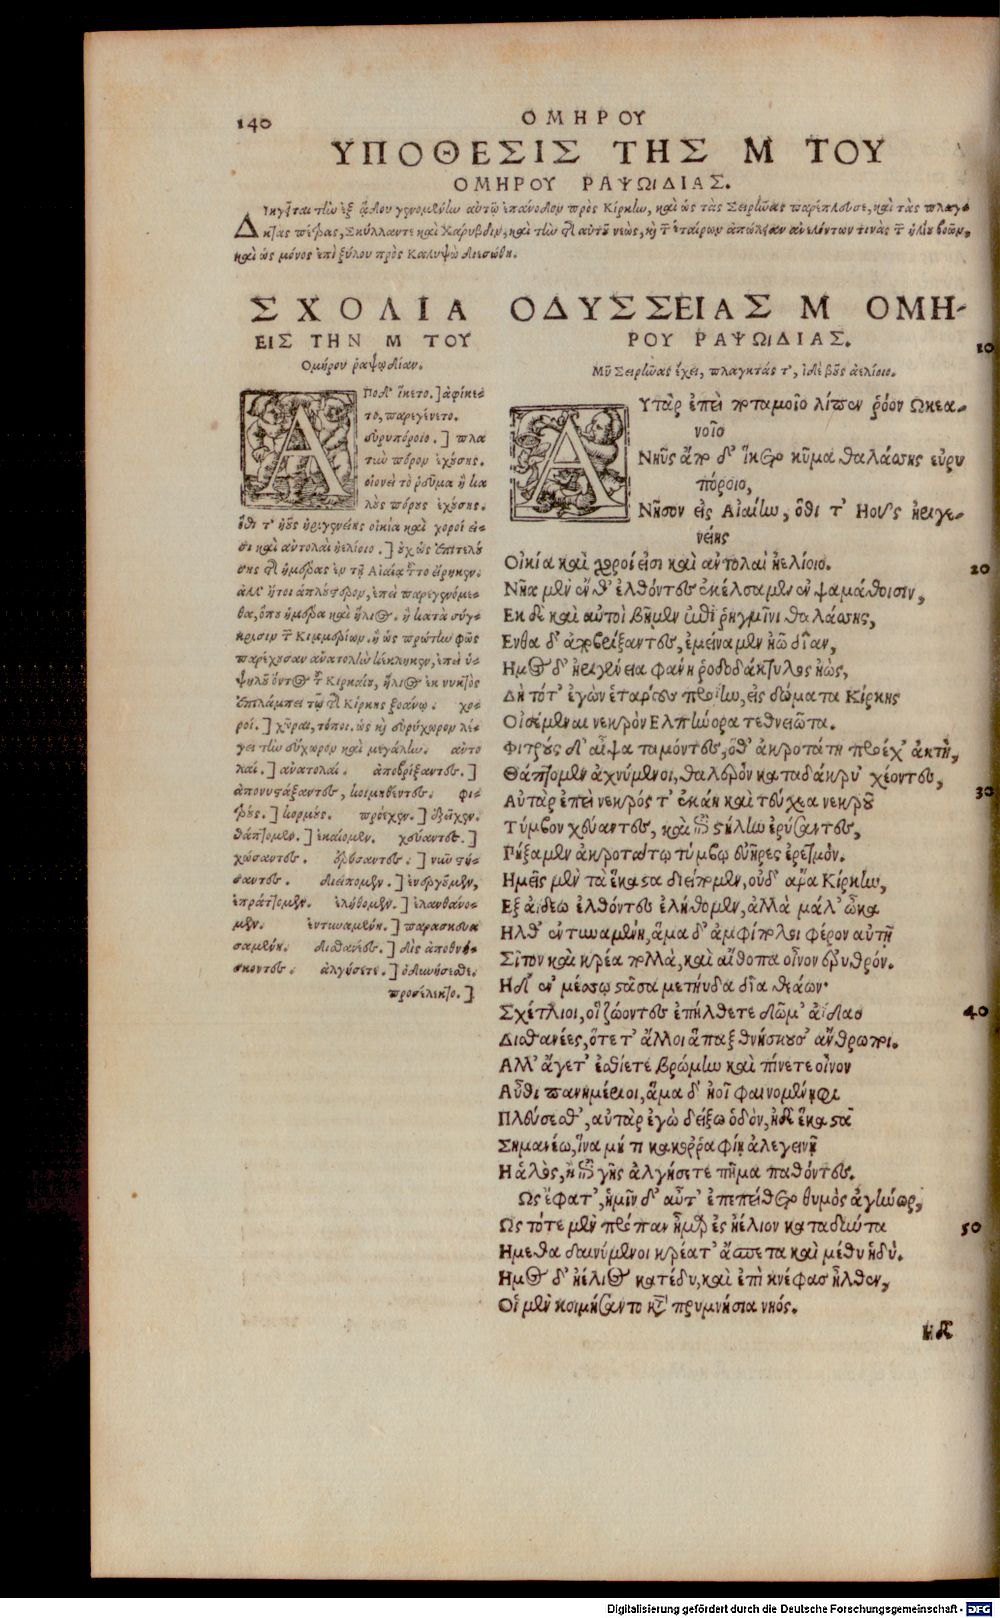 140
ΟΜΗΡΟΥ
ΥΠΟΘΕΣΙΣ ΤΗΣ Μ ΤΟΥ
ΟΜΗΡΟΥ ΡΑΨΩΙΔΙΑΣ.
Διηγεῖται τὴν ἐξ ᾅδου γενομένην αὐτῷ ἐπάνοδον πρὸς Κίρκην, καὶ ὡς τὰς Σειρῆνας παρέπλευσε, καὶ τὰς πλαγ-
κτὰς πέτρας, Σκύλλαν τε καὶ Χάρυβδιν, καὶ τὴν τῆς αὐτοῦ νεὼς, καὶ τῶν ἑταίρων ἀπώλειαν ἀνελόντων τινὰς τῶν ἡλίου βοῶν,
καὶ ὡς μόνος ἐπὶ ξύλου πρὸς Καλυψὼ διεσώθη.
ΣΧΟΛΙΑ
ΕΙΣ ΤΗΝ Μ ΤΟΥ
Ομήρου ῥαψῳδίαν.
Αποδ' ἵκετο.] ἀφίκε-
το, παρεγένετο.
εὐρυπόροιο.] πλα
τὺν πόρον ἐχούσης.
οἱονεὶ τὸ ῥεῦμα ἢ κα
λοὺς πόρους ἐχούσης.
ὅθι τ' ἠοῦς ἠριγενείης οἰκία καὶ χοροί εἰ-
σι καὶ αὐτολαὶ ἠελίοιο.] οὐχ ὡς ἐπιτελού
σης τῆς ἡμέρας ἐν τῇ Αἰαίᾳ τοῦτο εἴρηκεν.
ἀλλ' ἤτοι ἁπλούστερον, ἐπεὶ παρεγενόμε-
θα, ὅπου ἡμέρα καὶ ἥλιος. ἢ κατὰ σύγ-
κρισιν τῶν Κιμμερίων. ἢ ὡς πρώτην φῶς
παρέχουσαν ἀνατολὴν
ἐπιλάμπει τῷ τῆς Κίρκης ξοάνῳ. χο-
ροί.] χῶραι, τόποι. ὡς καὶ εὐρύχωρον λέ-
γει τὴν εὔχωρον καὶ μεγάλην. αὐτο
λαί.] ἀνατολαί. ἀποβρίξαντες.]
ἀπονυστάξαντες, κοιμηθέντες. φι-
τρούς.] κορμούς. πρόεχεν.] ἐξεῖχεν.
θάπτομεν.] ἐκαίομεν. χεύαντες.]
χώσαντες. ἐρύσαντες.]
σαντες. διείπομεν.] ἐνεργοῦμεν,
ἐπράττομεν. ἐλήθομεν.] ἐλανθάνο-
μεν. ἐντυναμένη.] παρασκευα
σαμένη. δισθανέες.] δὶς ἀποθνή-
σκοντες. ἀλγήσετε.] ὀδυνήσεσθε.
προσέλεκτο.]
ΟΔΥΣΣΕΙΑΣ Μ ΟΜΗ-
ΡΟΥ ΡΑΨΩΙΔΙΑΣ.
Μῦ Σειρῆνας ἔχει, πλαγκτάς τ', ἰδὲ βοῦς ἀελίοιο.
ΑΥτὰρ ἐπεὶ ποταμοῖο λίπεν ῥόον Ωκεα-
νοῖο
Νηῦς ἀπὸ δ' ἵκετο κῦμα θαλάσσης εὐρυ
πόροιο,
Νῆσον εἰς Αἰαίην, ὅθι τ' Ηοῦς ἠριγε-
νείης
Οἰκία καὶ χοροί εἰσι καὶ αὐτολαὶ ἠελίοιο.
Νῆα μὲν ἔνθ' ἐλθόντες ἐκέλσαμεν ἐν ψαμάθοισιν,
Εκ δὲ καὶ αὐτοὶ βῆμεν ἐπὶ ῥηγμῖνι θαλάσσης,
Ενθα δ' ἀποβρίξαντες, ἐμείναμεν ἠῶ δῖαν,
Ημος δ' ἠριγένεια φάνη ῥοδοδάκτυλος ἠὼς,
Δὴ τότ' ἐγὼν ἑτάρους προΐην, εἰς δώματα Κίρκης
Οἰσέμεναι νεκρὸν Ελπήνορα τεθνειῶτα.
Φιτροὺς δ' αἶψα ταμόντες, ὅθ' ἀκροτάτη πρόεχ' ἀκτὴ,
Θάπτομεν ἀχνύμενοι, θαλερὸν κατὰ δάκρυ χέοντες,
Αὐτὰρ ἐπεὶ νεκρός τ' ἐκάη καὶ τεύχεα νεκροῦ
Τύμβον χεύαντες, καὶ ἐπὶ στήλην ἐρύσαντες,
Πήξαμεν ἀκροτάτῳ τύμβῳ εὐῆρες ἐρετμόν.
Ημεῖς μὲν τὰ ἕκαστα διείπομεν, οὐδ' ἄρα Κίρκην,
Εξ ἀΐδεω ἐλθόντες ἐλήθομεν, ἀλλὰ μάλ' ὦκα
Ηλθ' ἐντυναμένη, ἅμα δ' ἀμφίπολοι φέρον αὐτῇ
Σῖτον καὶ κρέα πολλὰ, καὶ αἴθοπα οἶνον ἐρυθρόν.
Η δ' ἐν μέσῳ στᾶσα μετηύδα δῖα θεάων·
Σχέτλιοι, οἳ ζώοντες ἐπήλθετε δῶμ' ἀΐδαο
Δισθανέες, ὅτε τ' ἄλλοι ἅπαξ θνήσκουσ' ἄνθρωποι.
Αλλ' ἄγετ' ἐσθίετε βρώμην καὶ πίνετε οἶνον
Αὖθι πανημέριοι, ἅμα δ' ἠοῖ φαινομένηφι
Πλεύσεσθ', αὐτὰρ ἐγὼ δείξω ὁδὸν, ἠδὲ ἕκαστα
Σημανέω, ἵνα μή τι κακορραφίῃ ἀλεγεινῇ
Η ἁλὸς, ἢ ἐπὶ γῆς ἀλγήσετε πῆμα παθόντες.
Ως ἔφατ', ἡμῖν δ' αὖτ' ἐπεπείθετο θυμὸς ἀγήνωρ,
Ως τότε μὲν πρόπαν ἦμαρ ἐς ἠέλιον καταδύντα
Ημεθα δαινύμενοι κρέατ' ἄσπετα καὶ μέθυ ἡδύ.
Ημος δ' ἠέλιος κατέδυ, καὶ ἐπὶ κνέφας ἦλθεν,
Οἱ μὲν κοιμήσαντο κατὰ πρυμνήσια νηός.
Ηδ'
10
20
30
40
50
Digitalisierung gefördert durch die Deutsche Forschungsgemeinschaft - DFG